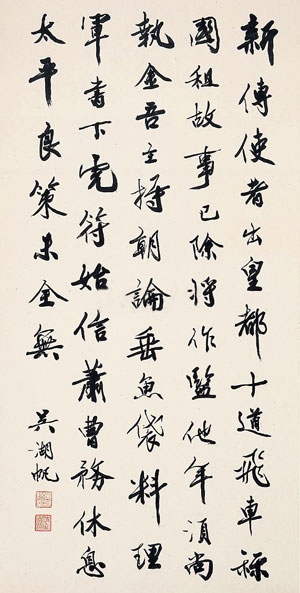 新傳使者出皇都十道飛車
國租故事已除將作監他年須尚
執金吾主持朝論垂魚袋料理
軍書下虎符始信蕭曹務休息
太平良策未全無
吳湖帆